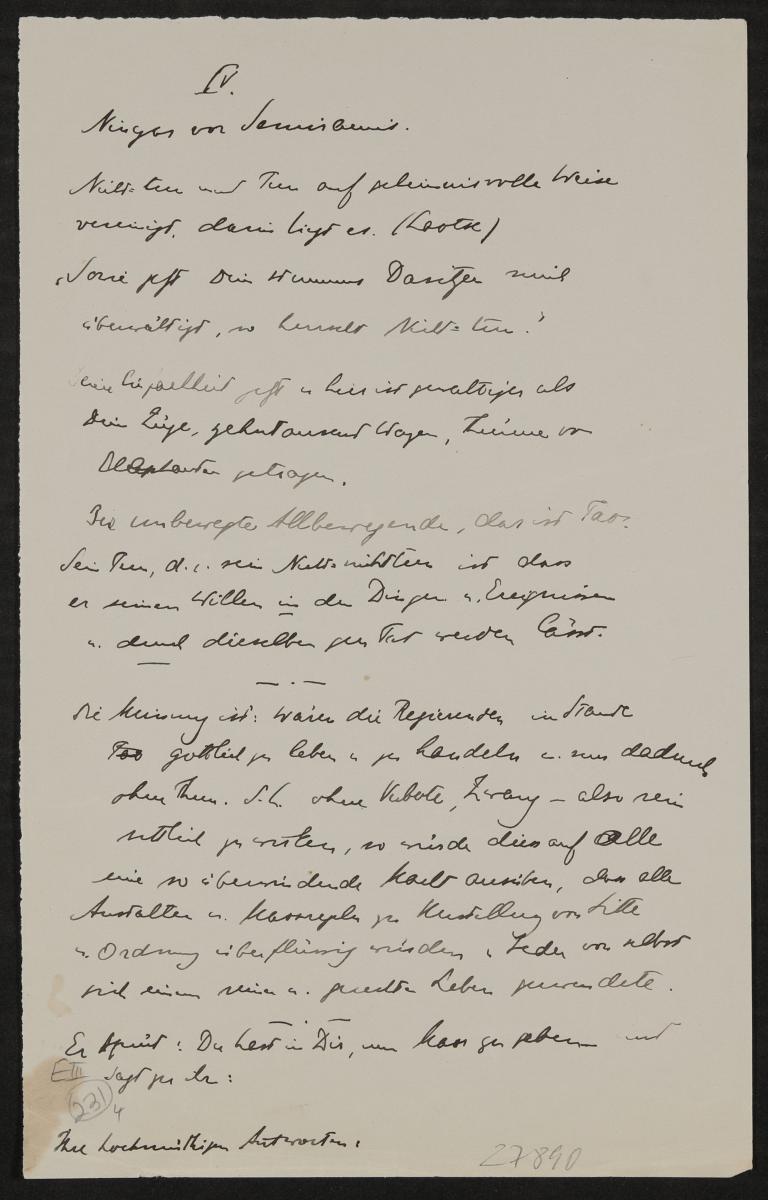 IV.
Ninyas vor Semiramis.
Nicht=tun und Tun auf geheimnisvolle Weise
vereinigt, darin liegt es. (Laotse)
Dein stummes Dasitzen mich
überwältigt, so herrscht Nicht=tun."
ist gewaltiger als
Dein Züge, zehntausend Wagen, Türme von
Elephanten getragen.
Der unbewegte Allbewegende, das ist Tao.
Sein Tun, d.i. sein Nicht=nichttun ist dass
er seinen Willen in den Dingen u. Ereignissen
u. durch dieselben zur Tat werden lässt.
— . —
Die Meinung ist: wären die Regierenden im Stande
Tao göttlich zu leben u. zu handeln u. nur dadurch
ohne Thun. d.h. ohne Verbote, Zwang – also rein
sittlich zu wirken, so würde dies auf Alle
eine so überwindende Macht ausüben, dass alle
Anstalten u. Massregeln zur Herstellung von Sitte
u. Ordnung überflüssig würden u. Jeder von selbst
sich einem reinen u. gerechten Leben zuwendete.
— . —
Er spricht: Du hast in Dir, um Mass zu geben und
EIII sagt zu ihr:
231
4
Ihre hochmüthigen Antworten:
27890